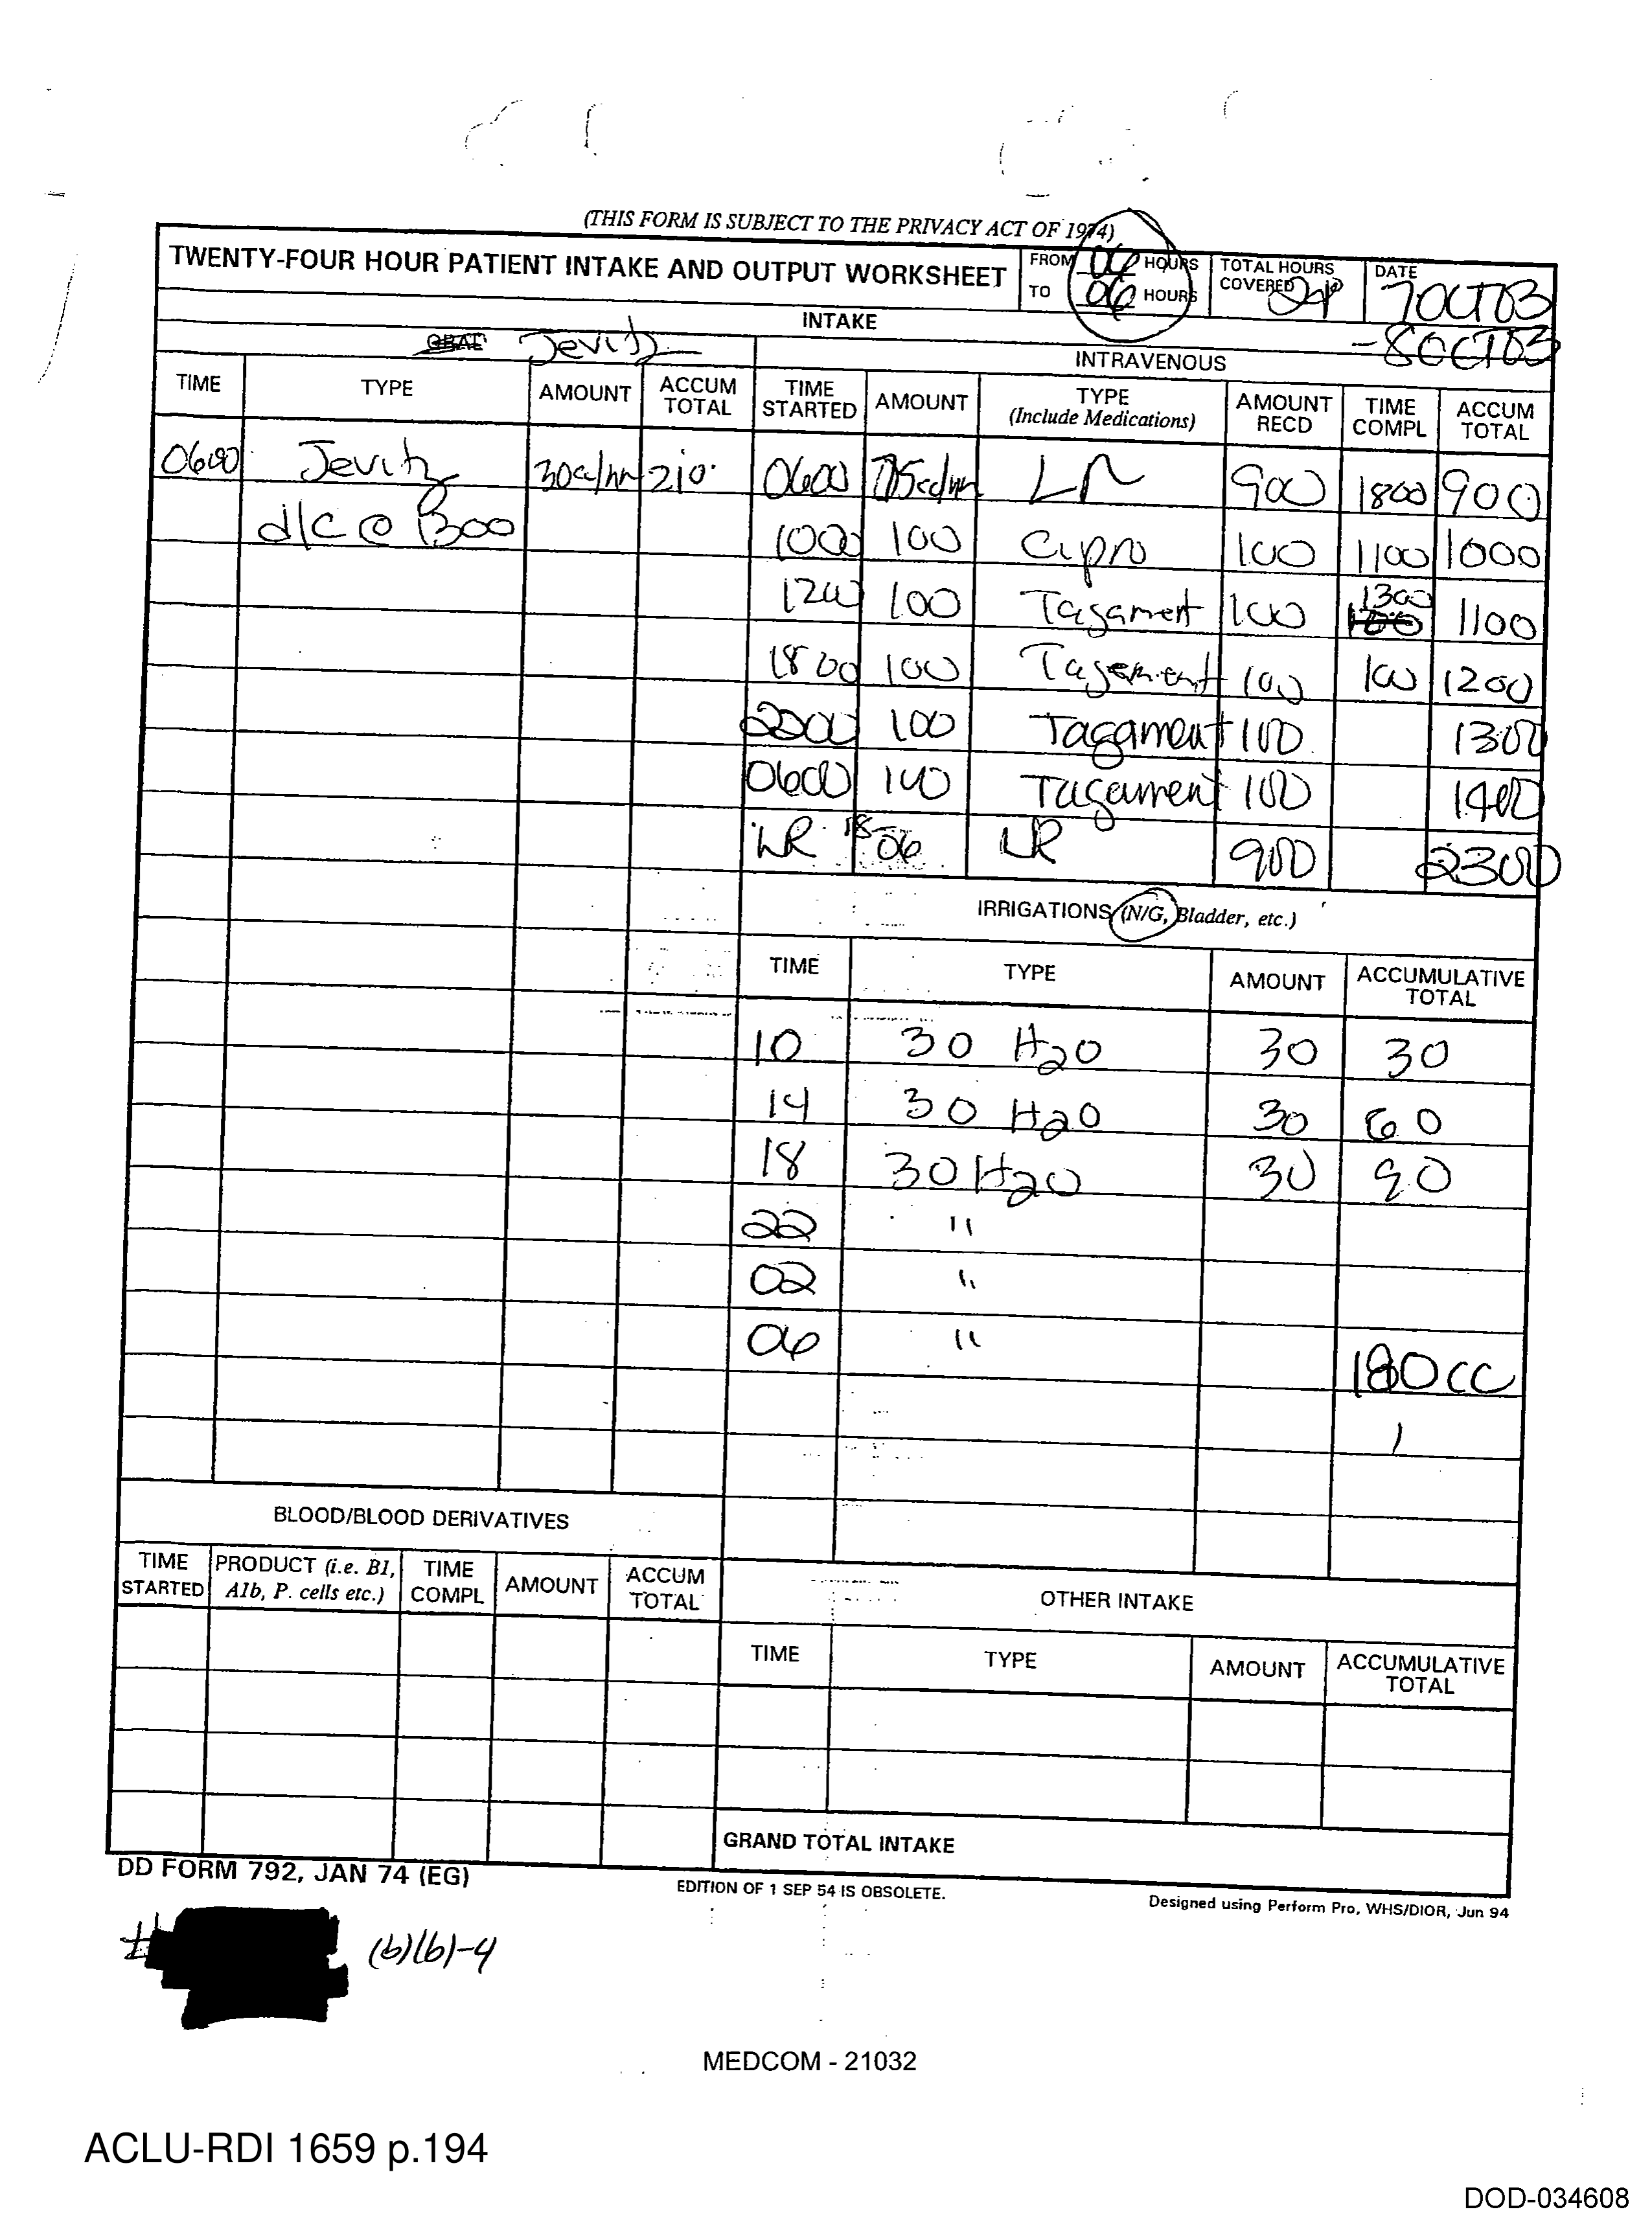 (THIS FORM IS SUBJECT TO THE PRIVACY ACT OF 1974)
TWENTY-FOUR HOUR PATIENT INTAKE AND OUTPUT WORKSHEET
FROM 06 HOURS
TO 06 HOURS
TOTAL HOURS COVERED 24
DATE 7OCT03
-8OCT03
INTAKE
ORAL Jevity
INTRAVENOUS
TIME TYPE AMOUNT ACCUM TOTAL TIME STARTED AMOUNT TYPE (Include Medications) AMOUNT RECD TIME COMPL ACCUM TOTAL
0600 Jevity 30cc/hr 210 0600 75cc/hr LR 900 1800 900
d/c @ 1300 1000 100 Cipro 100 1100 1000
1200 100 Tagament 100 1300 1100
1800 100 Tagement 100 100 1200
2200 100 Tagament 100 1300
0600 100 Tagament 100 1400
LR 18-06 LR 900 2300
IRRIGATIONS (N/G, Bladder, etc.)
TIME TYPE AMOUNT ACCUMULATIVE TOTAL
10 30 H2O 30 30
14 30 H2O 30 60
18 30 H2O 30 90
22 "
02 "
06 "
180cc
BLOOD/BLOOD DERIVATIVES
TIME STARTED PRODUCT (i.e. B1, A1b, P. cells etc.) TIME COMPL AMOUNT ACCUM TOTAL
OTHER INTAKE
TIME TYPE AMOUNT ACCUMULATIVE TOTAL
GRAND TOTAL INTAKE
DD FORM 792, JAN 74 (EG)
EDITION OF 1 SEP 54 IS OBSOLETE.
Designed using Perform Pro, WHS/DIOR, Jun 94
# (b)(6)-4
MEDCOM - 21032
ACLU-RDI 1659 p.194
DOD-034608